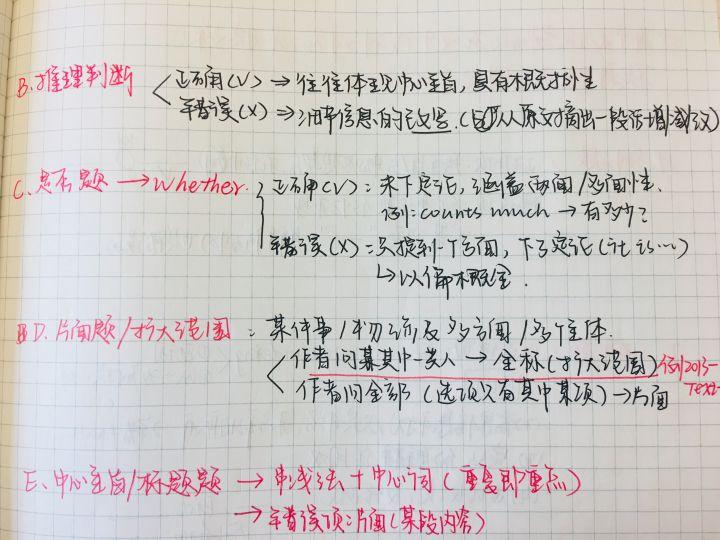 B. 推理判断
正确(√) → 往往体现中心主旨，具有概括性
错误(X) → 细碎信息的改写.(即从原文摘出一段话增减改)
C. 是否题 → whether. 正确(√)：未下定论，涵盖两面/多面性.
例：counts much → 有多少？
错误(X)：只提到一个方面，下了定论(it is…)
↳ 以偏概全.
D. 片面题/扩大范围：某件事/物涉及多方面/多个主体.
作者问某其中一类人 → 全称(扩大范围) 例2013-
作者问全部 (选项只有其中某项) → 片面 Text
E. 中心主旨/标题题 → 串线法 + 中心词 (重复即重点)
→ 错误项：片面(某段内容)